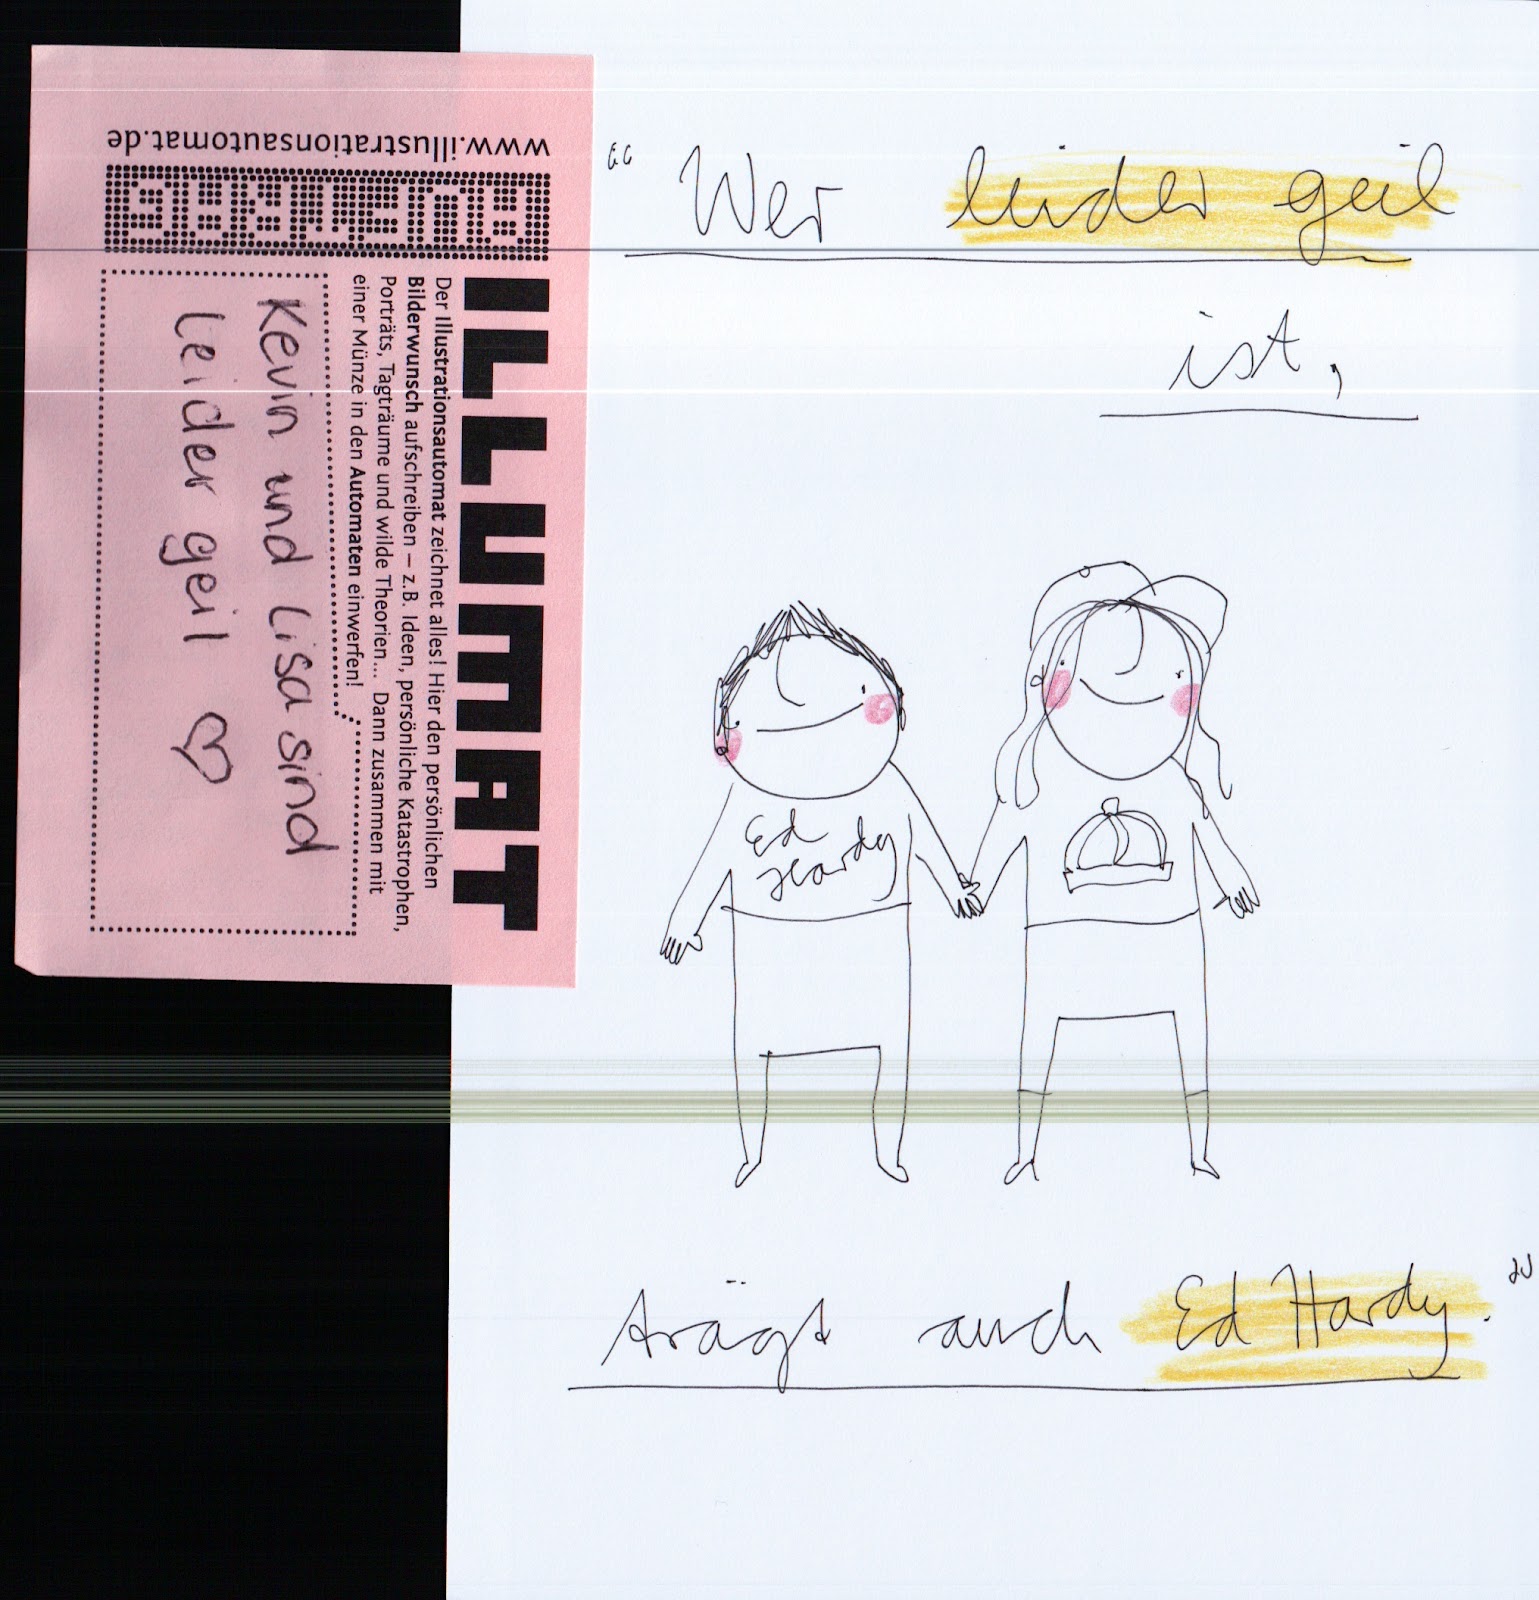 www.illustrationsautomat.de
ILLUMAT
Der Illustrationsautomat zeichnet alles! Hier den persönlichen
Bilderwunsch aufschreiben – z.B. Ideen, persönliche Katastrophen,
Porträts, Tagträume und wilde Theorien... Dann zusammen mit
einer Münze in den Automaten einwerfen!
Kevin und Lisa sind
leider geil ♡
“Wer leider geil
ist,
Ed
Hardy
trägt auch Ed Hardy.”